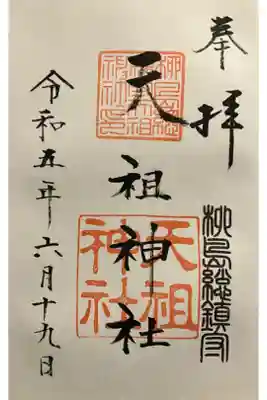 奉拝
柳島総鎮守
天祖神社
天祖
神社
令和五年六月十九日